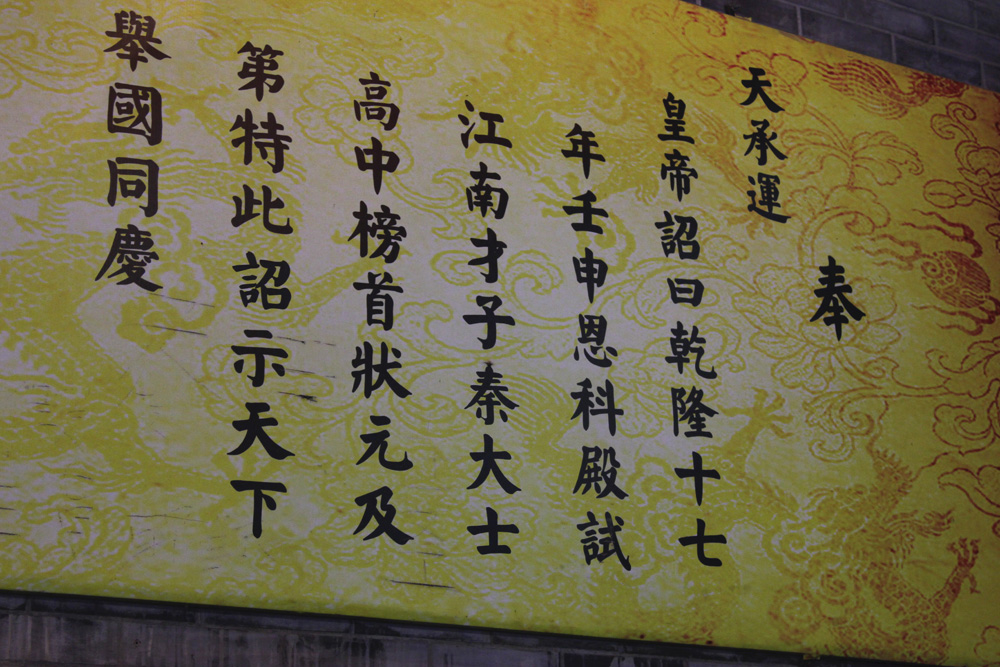 奉
天承運
皇帝詔曰乾隆十七
年壬申恩科殿試
江南才子秦大士
高中榜首狀元及
第特此詔示天下
舉國同慶